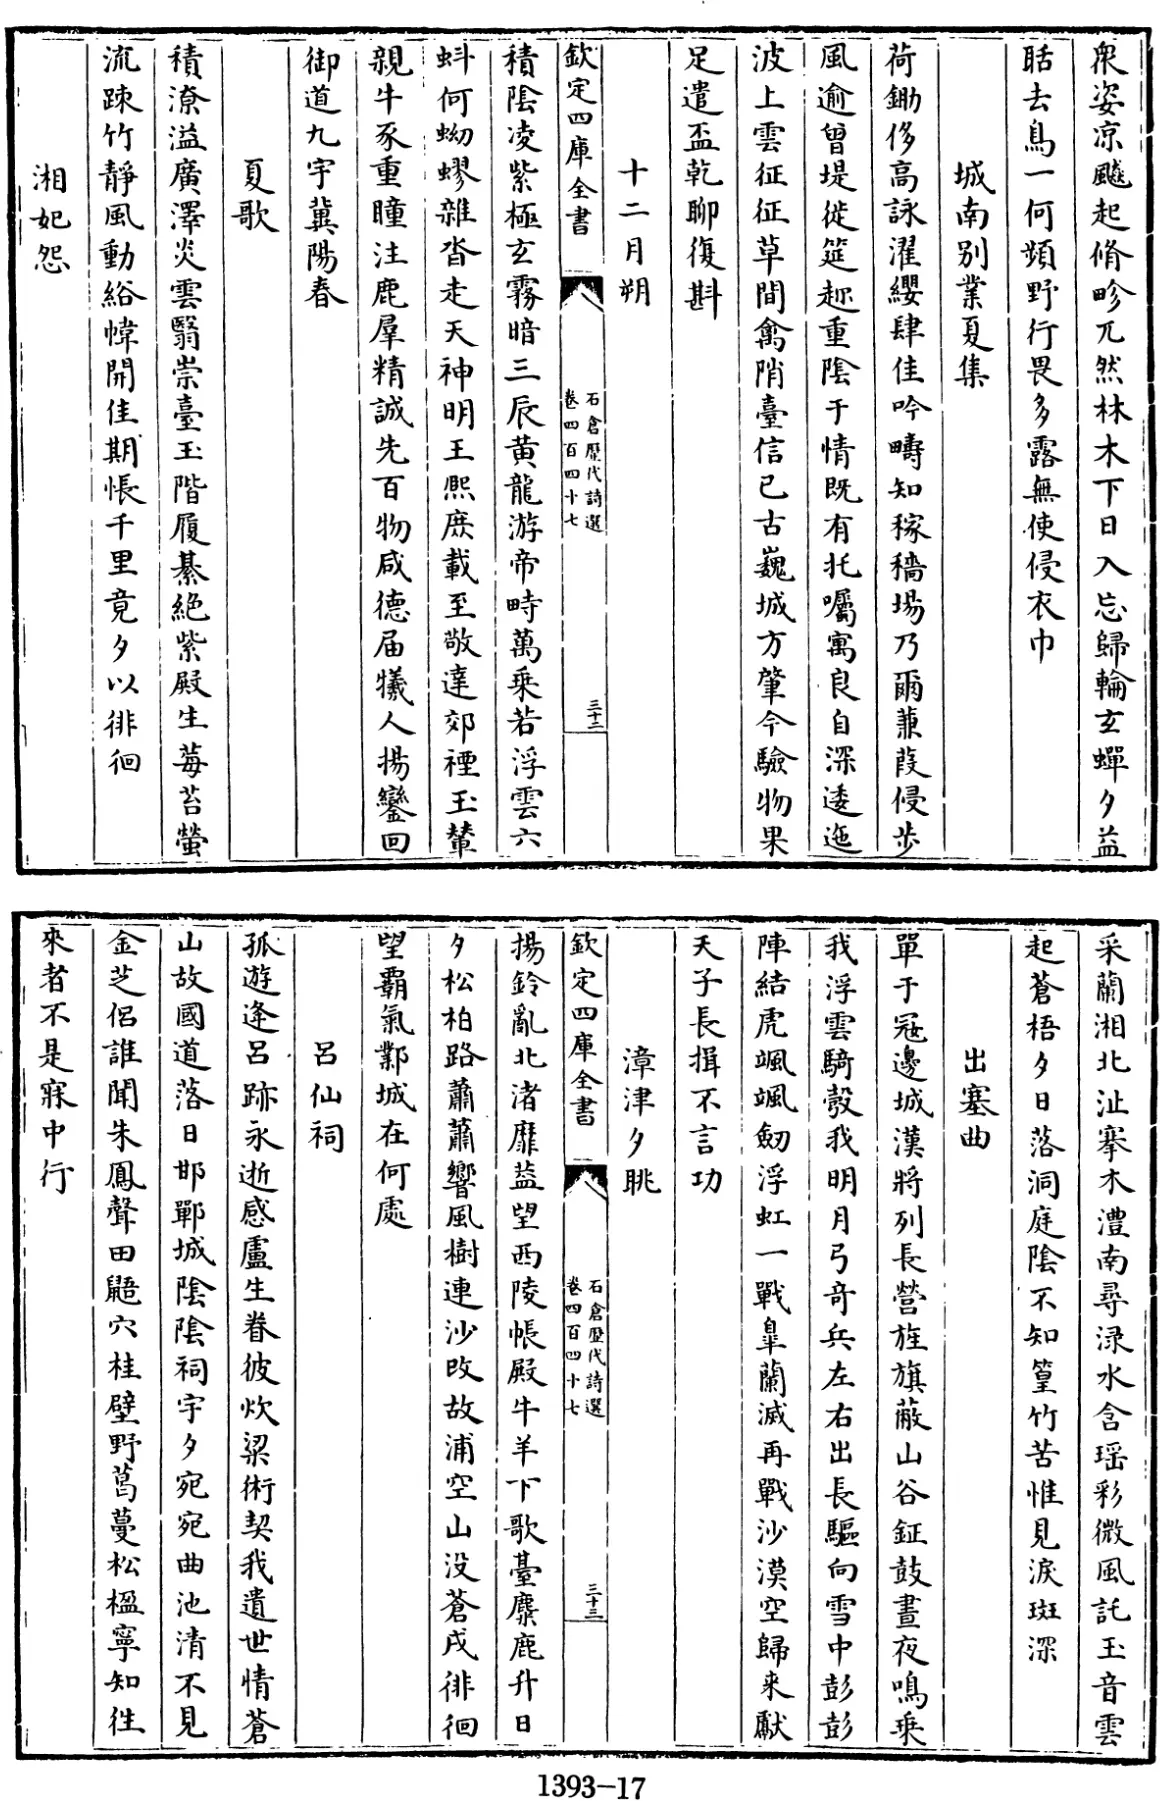 衆姿凉飈起脩畛兀然林木下日入忘歸輪玄蟬夕益
聒去鳥一何頻野行畏多露無使侵衣巾
城南别業夏集
荷鋤侈高詠濯纓肆佳吟疇知稼穡場乃爾蒹葭侵步
風逾曾堤徙筵趂重陰于情既有托囑寓良自深逶迤
波上雲征征草間禽陗臺信已古巍城方肇今驗物果
足遣盃乾聊復斟
十二月朔
欽定四庫全書
石倉歷代詩選
卷四百四十七
三十二
積陰凌紫極玄霧暗三辰黄龍游帝畤萬乘若浮雲六
蚪何蚴蟉雜沓走天神明王熙庶載至敬達郊禋玉輦
親牛豕重瞳注鹿羣精誠先百物咸德届犧人揚鑾回
御道九宇冀陽春
夏歌
積潦溢廣澤炎雲翳崇臺玉階履綦絶紫殿生莓苔螢
流疎竹靜風動綌幃開佳期悵千里竟夕以徘徊
湘妃怨
采蘭湘北沚搴木澧南尋渌水含瑶彩微風託玉音雲
起蒼梧夕日落洞庭陰不知篁竹苦惟見淚斑深
出塞曲
單于冦邊城漢將列長營旌旗蔽山谷鉦鼓晝夜鳴乗
我浮雲騎彀我明月弓竒兵左右出長驅向雪中彭彭
陣結虎颯颯劒浮虹一戰臯蘭滅再戰沙漠空歸来獻
天子長揖不言功
漳津夕眺
欽定四庫全書
石倉歷代詩選
卷四百四十七
三十三
揚舲亂北渚靡葢望西陵帳殿牛羊下歌臺麋鹿升日
夕松柏路蕭蕭響風樹連沙改故浦空山没蒼戍徘徊
望霸氣鄴城在何處
呂仙祠
孤遊逢呂跡永逝感盧生眷彼炊粱術契我遺世情蒼
山故國道落日邯鄲城陰陰祠宇夕宛宛曲池清不見
金芝侣誰聞朱鳳聲田鼯穴桂壁野蔦蔓松楹寧知徃
來者不是寐中行
1393-17